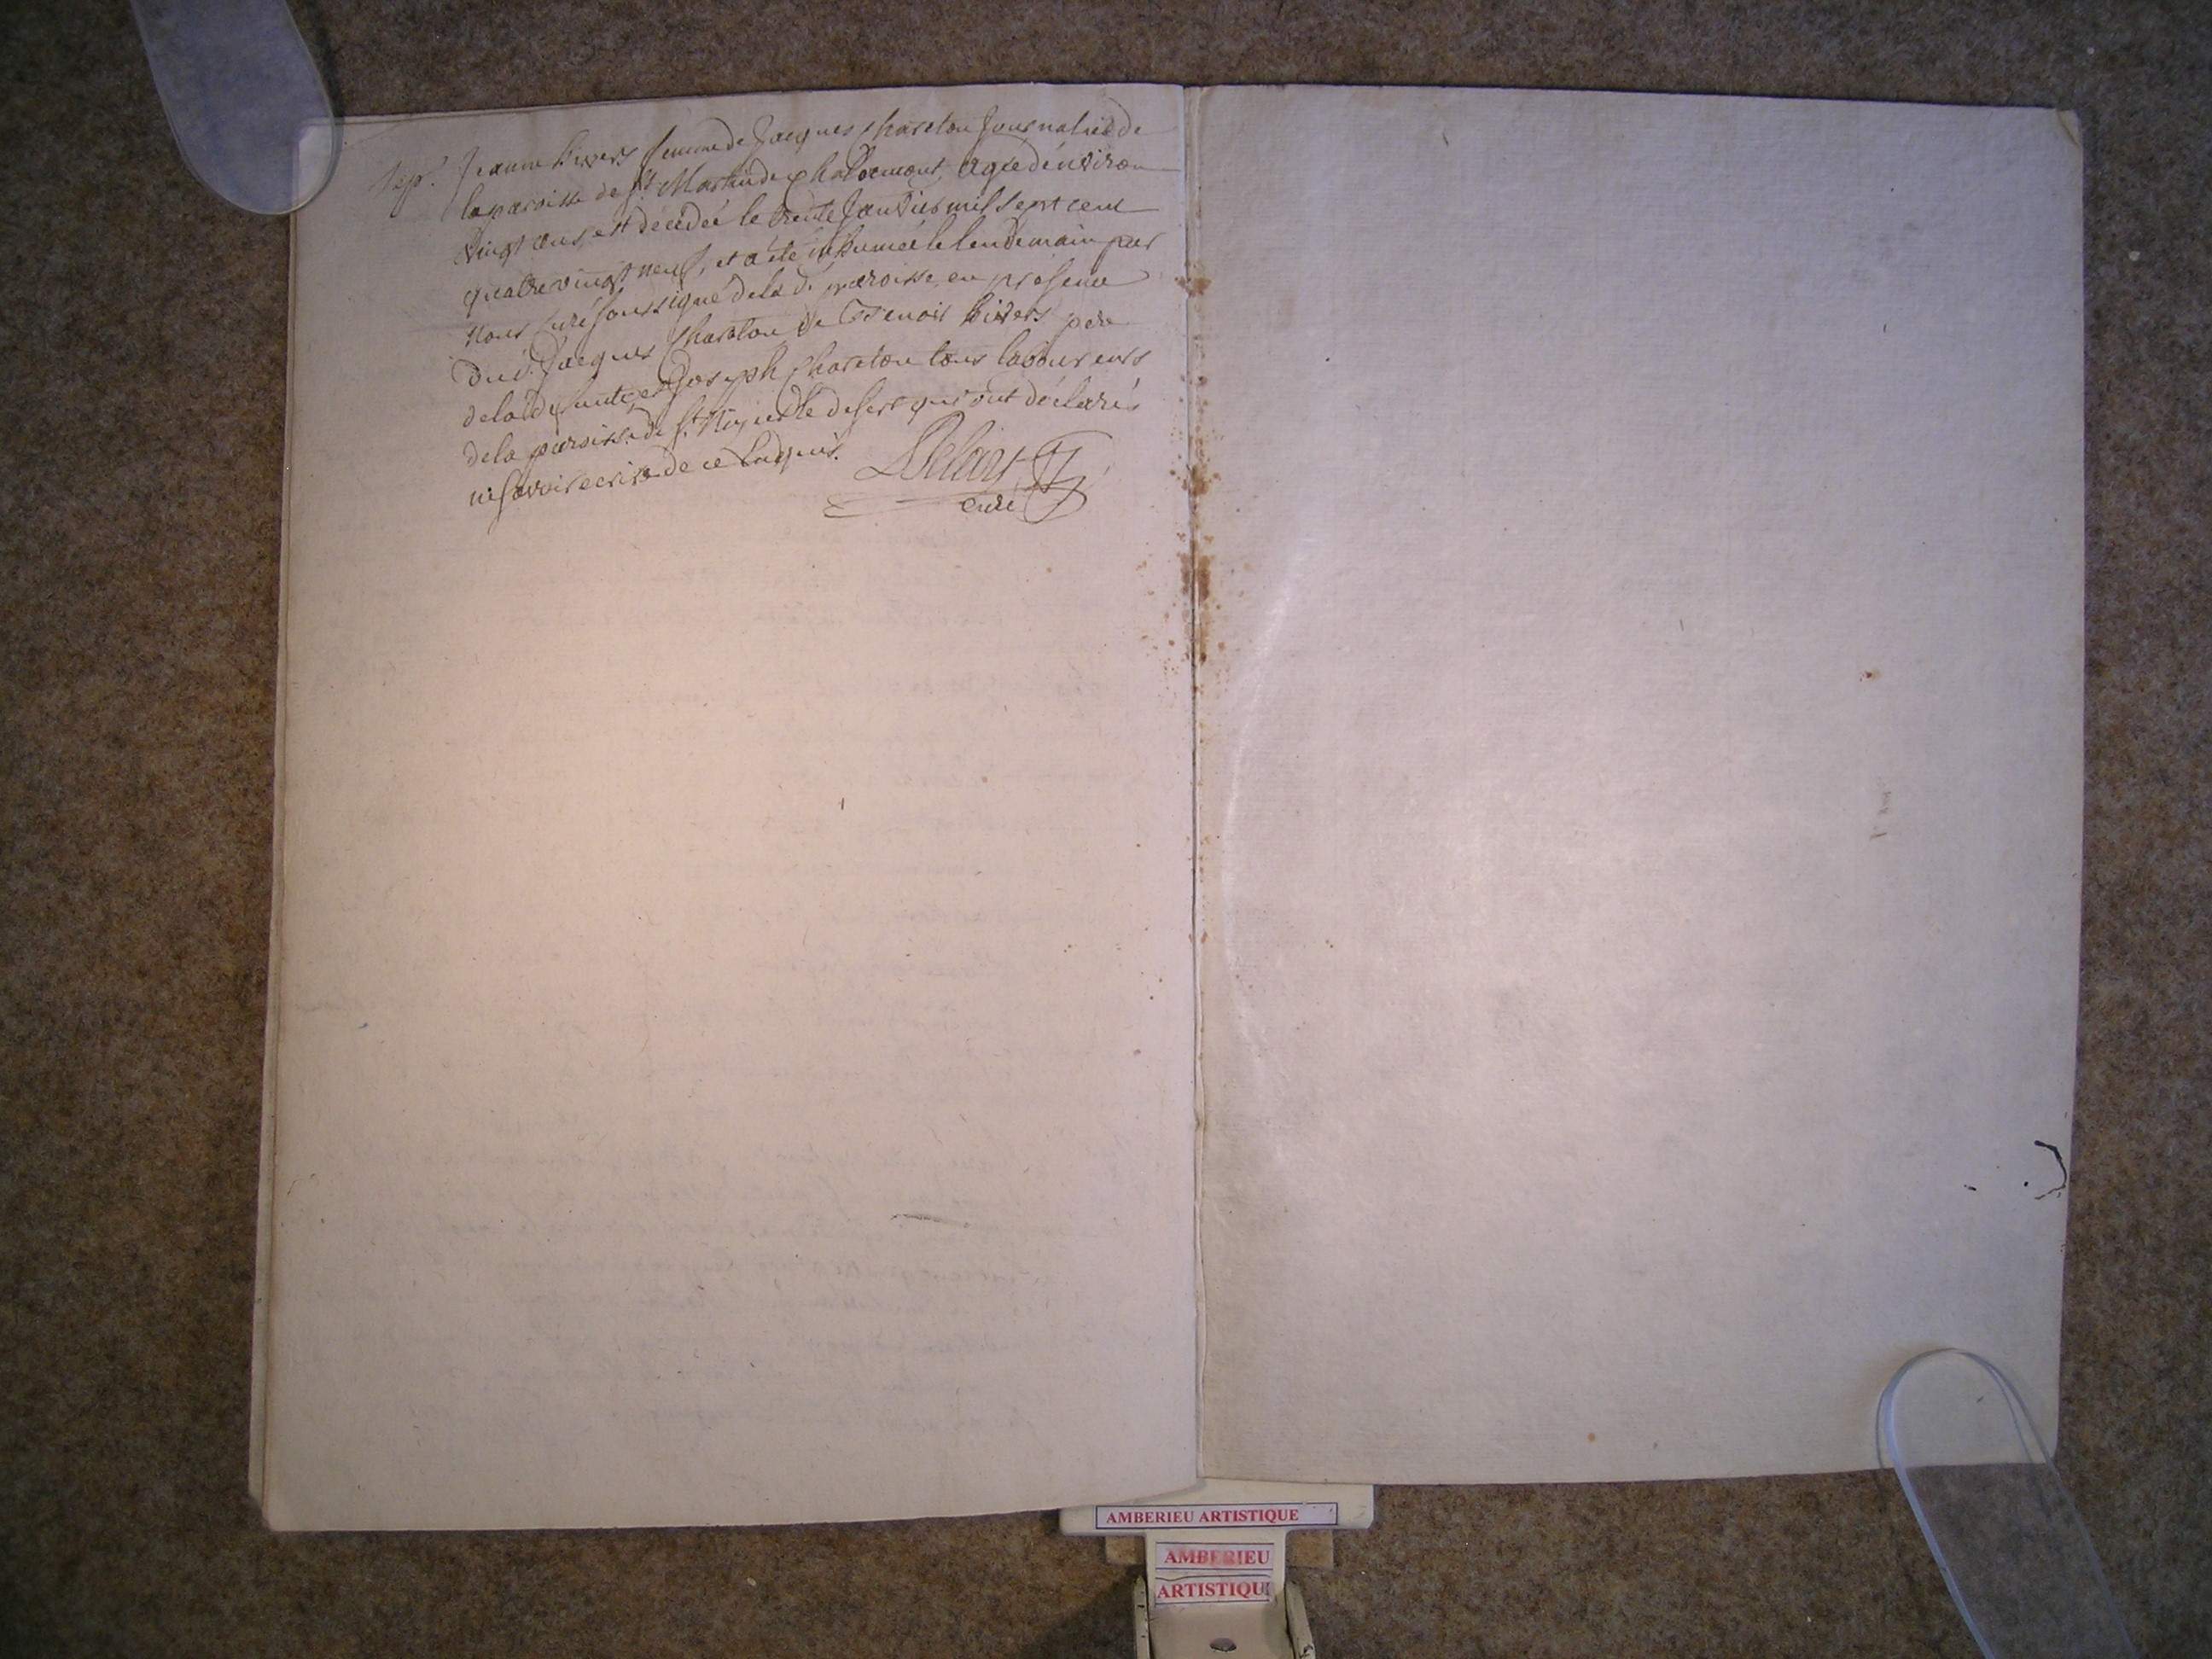 Sep.
Jeanne Bivers femme de Jacques Chareton Journalié de
la paroisse de St Martin de Chalamont, agée d'environ
vingt ans, est decedée le trente Janvier mil sept cent
quatre vingt neuf, et a été inhumée le lendemain par
nous Curé soussigné de la d. paroisse, en présence
dud. Jacques Chareton, de Benoit Bivers père
de la defunte, et Joseph Chareton tous laboureurs
de la paroisse de St Nizier le desert qui ont déclarés
ne savoir ecrire de ce enquis.
curé
AMBERIEU ARTISTIQUE
AMBERIEU
ARTISTIQU